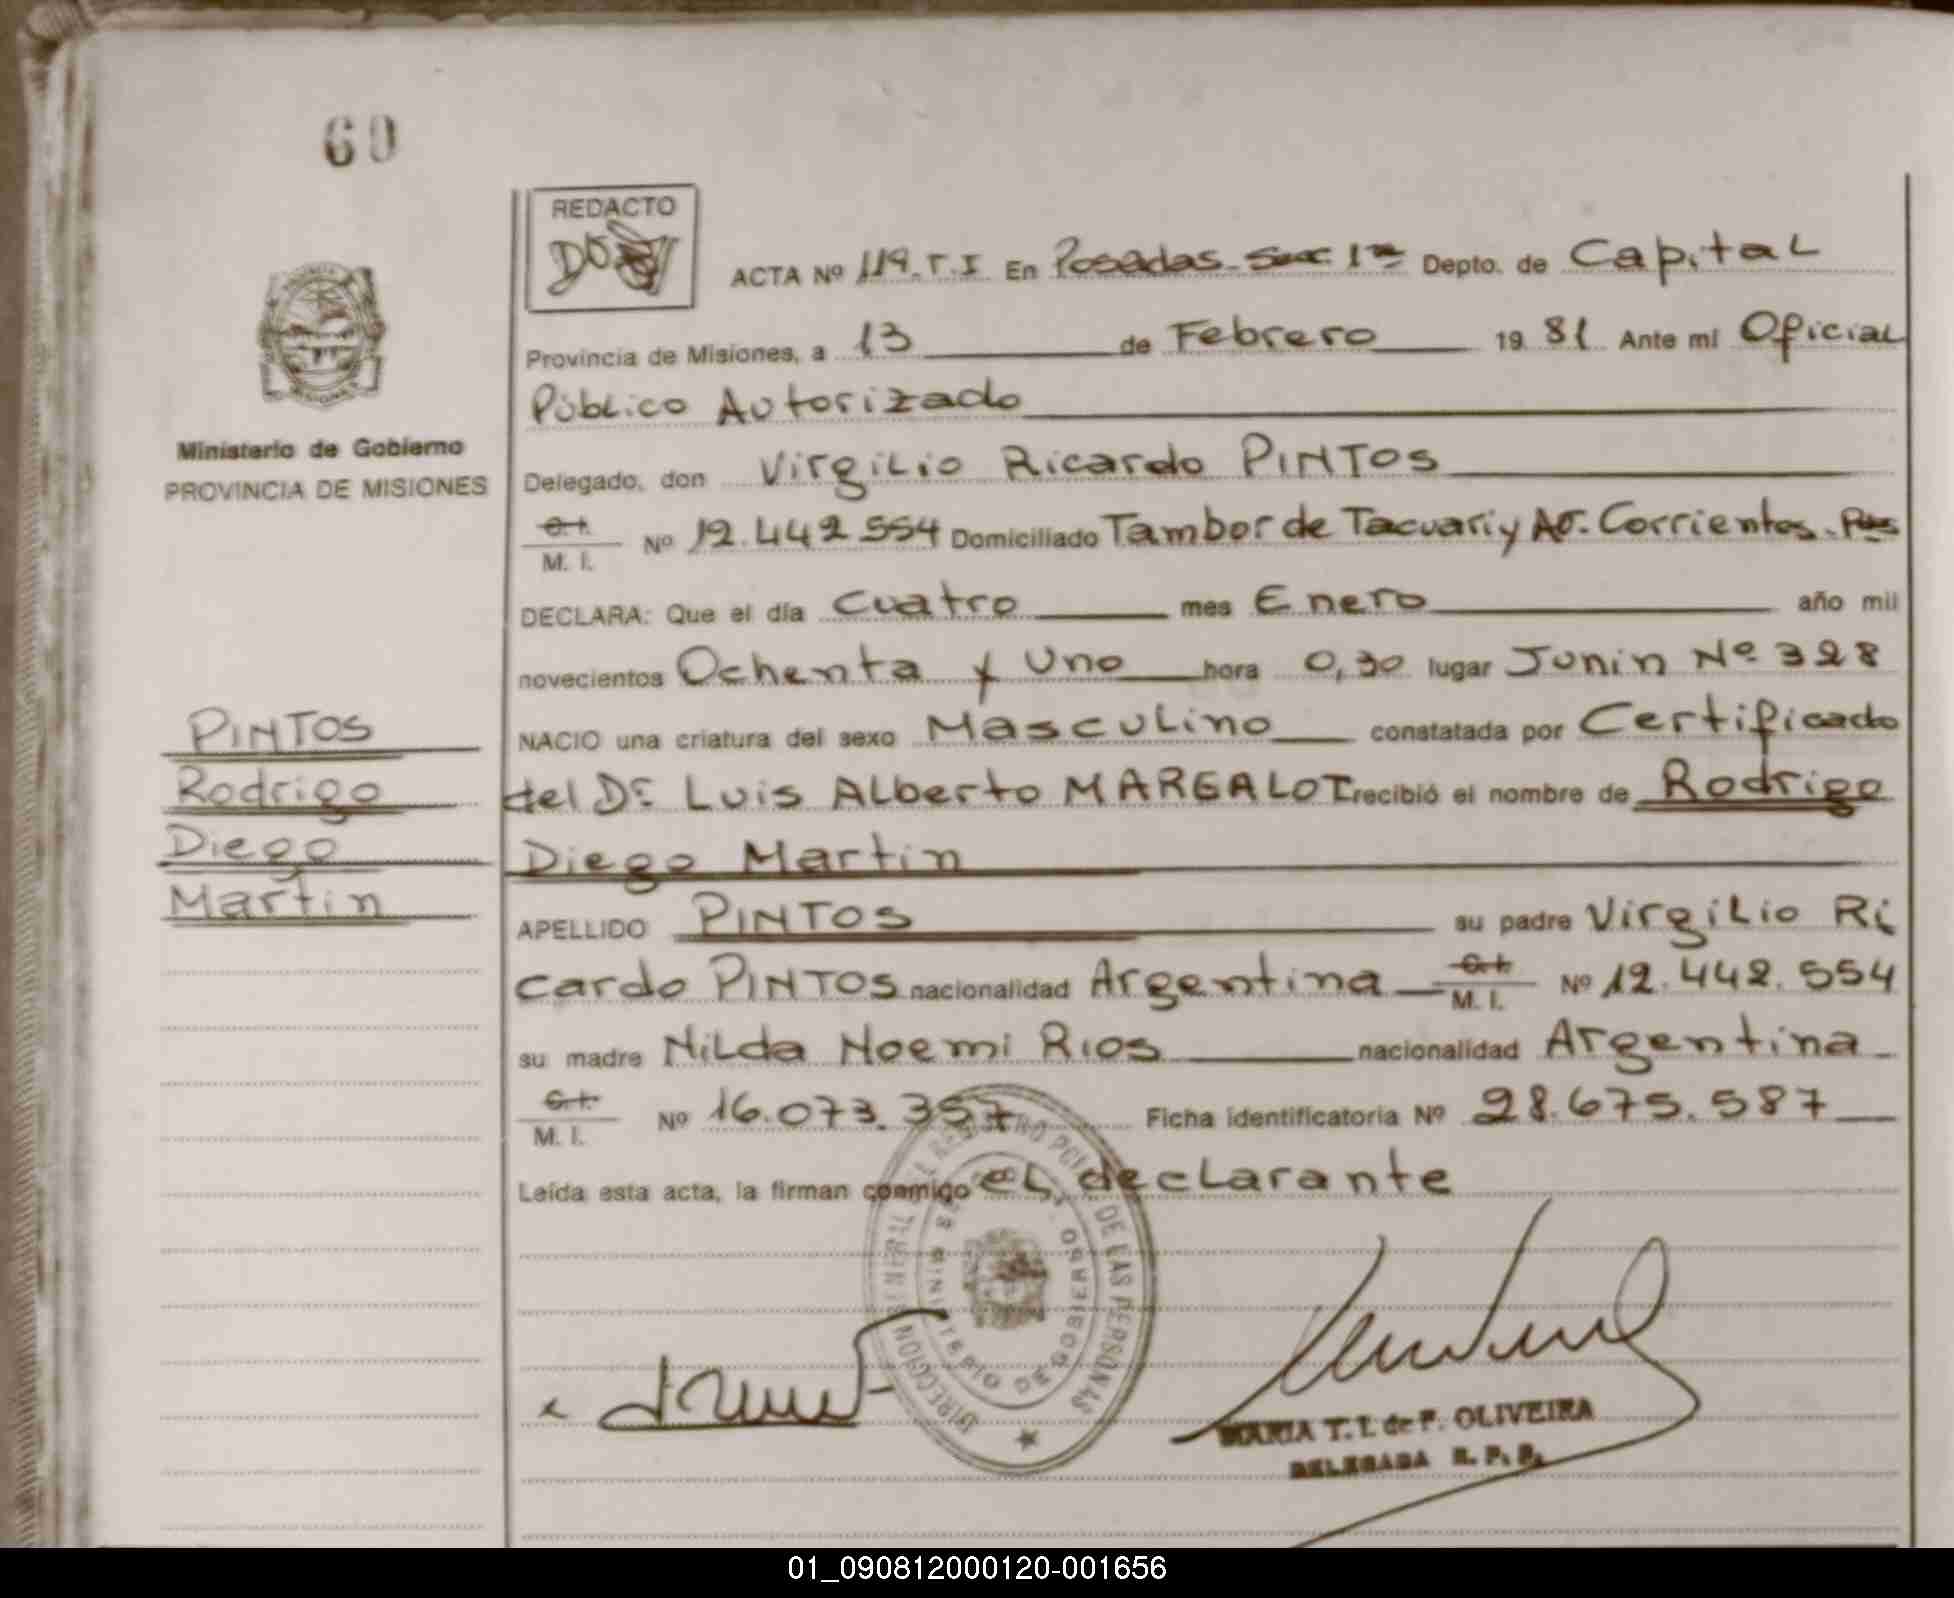 60
REDACTO
ACTA Nº 119.T.I En Posadas - Sec 1ª Depto. de Capital
Provincia de Misiones, a 13 de Febrero 1981 Ante mi Oficial
Público Autorizado
Ministerio de Gobierno
PROVINCIA DE MISIONES
Delegado, don Virgilio Ricardo PINTOS
C.I.
M. I. Nº 12.442.554 Domiciliado Tambor de Tacuari y Av. Corrientes. Pdas
DECLARA: Que el día Cuatro mes Enero año mil
novecientos Ochenta y Uno hora 0,30 lugar Junin Nº 328
PINTOS
Rodrigo
Diego
Martin
NACIO una criatura del sexo Masculino constatada por Certificado
del Dr. Luis Alberto MARGALOT recibió el nombre de Rodrigo
Diego Martin
APELLIDO PINTOS su padre Virgilio Ri
cardo PINTOS nacionalidad Argentina C.I.
M. I. Nº 12.442.554
su madre Nilda Noemi Rios nacionalidad Argentina
C.I.
M. I. Nº 16.073.357 Ficha identificatoria Nº 28.675.587
Leída esta acta, la firman conmigo el declarante
MINISTERIO DE GOBIERNO
MARIA T. I. de F. OLIVEIRA
DELEGADA R. P. P.
01_090812000120-001656